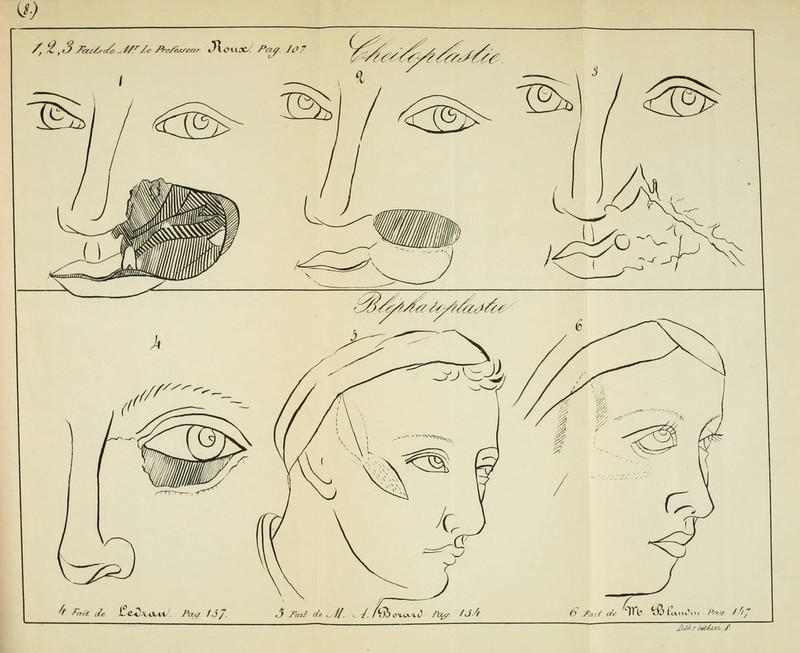 (8.)
1, 2, 3 Faits de Mr. le Professeur Roux. Pag. 107
Cheiloplastie.
1
2
3
Blépharoplastie
4
5
6
4 Fait de Ledran. Pag. 157.
5 Fait de M. A. Berard Pag. 154
6 Fait de Mr. Blandin. Pag. 147